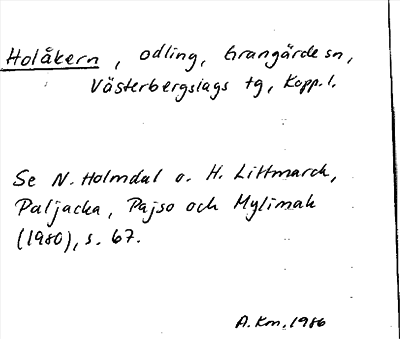 Holåkern, odling, Grangärde sn,
Västerbergslags tg, Kopp. l.
Se N. Holmdal o. H. Littmarck,
Paljacka, Pajso och Mylimak
(1980), s. 67.
A. Km. 1986